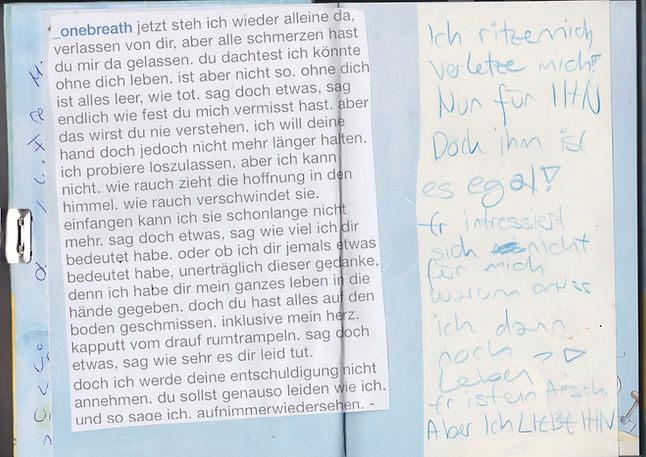 _onebreath jetzt steh ich wieder alleine da,
verlassen von dir, aber alle schmerzen hast
du mir da gelassen. du dachtest ich könnte
ohne dich leben. ist aber nicht so. ohne dich
ist alles leer, wie tot. sag doch etwas, sag
endlich wie fest du mich vermisst hast. aber
das wirst du nie verstehen. ich will deine
hand doch jedoch nicht mehr länger halten.
ich probiere loszulassen, aber ich kann
nicht. wie rauch zieht die hoffnung in den
himmel. wie rauch verschwindet sie.
einfangen kann ich sie schonlange nicht
mehr. sag doch etwas, sag wie viel ich dir
bedeutet habe. oder ob ich dir jemals etwas
bedeutet habe, unerträglich dieser gedanke,
denn ich habe dir mein ganzes leben in die
hände gegeben. doch du hast alles auf den
boden geschmissen. inklusive mein herz.
kapputt vom drauf rumtrampeln. sag doch
etwas, sag wie sehr es dir leid tut.
doch ich werde deine entschuldigung nicht
annehmen. du sollst genauso leiden wie ich.
und so sage ich. aufnimmerwiedersehen. -
Ich ritze mich
verletze mich!
Nur für IHN
Doch ihm ist
es egal!
Er intressiert
sich nicht
für mich
warum muss
ich dann
noch
Leben
Er ist ein Arsch
Aber Ich LIEBE IHN